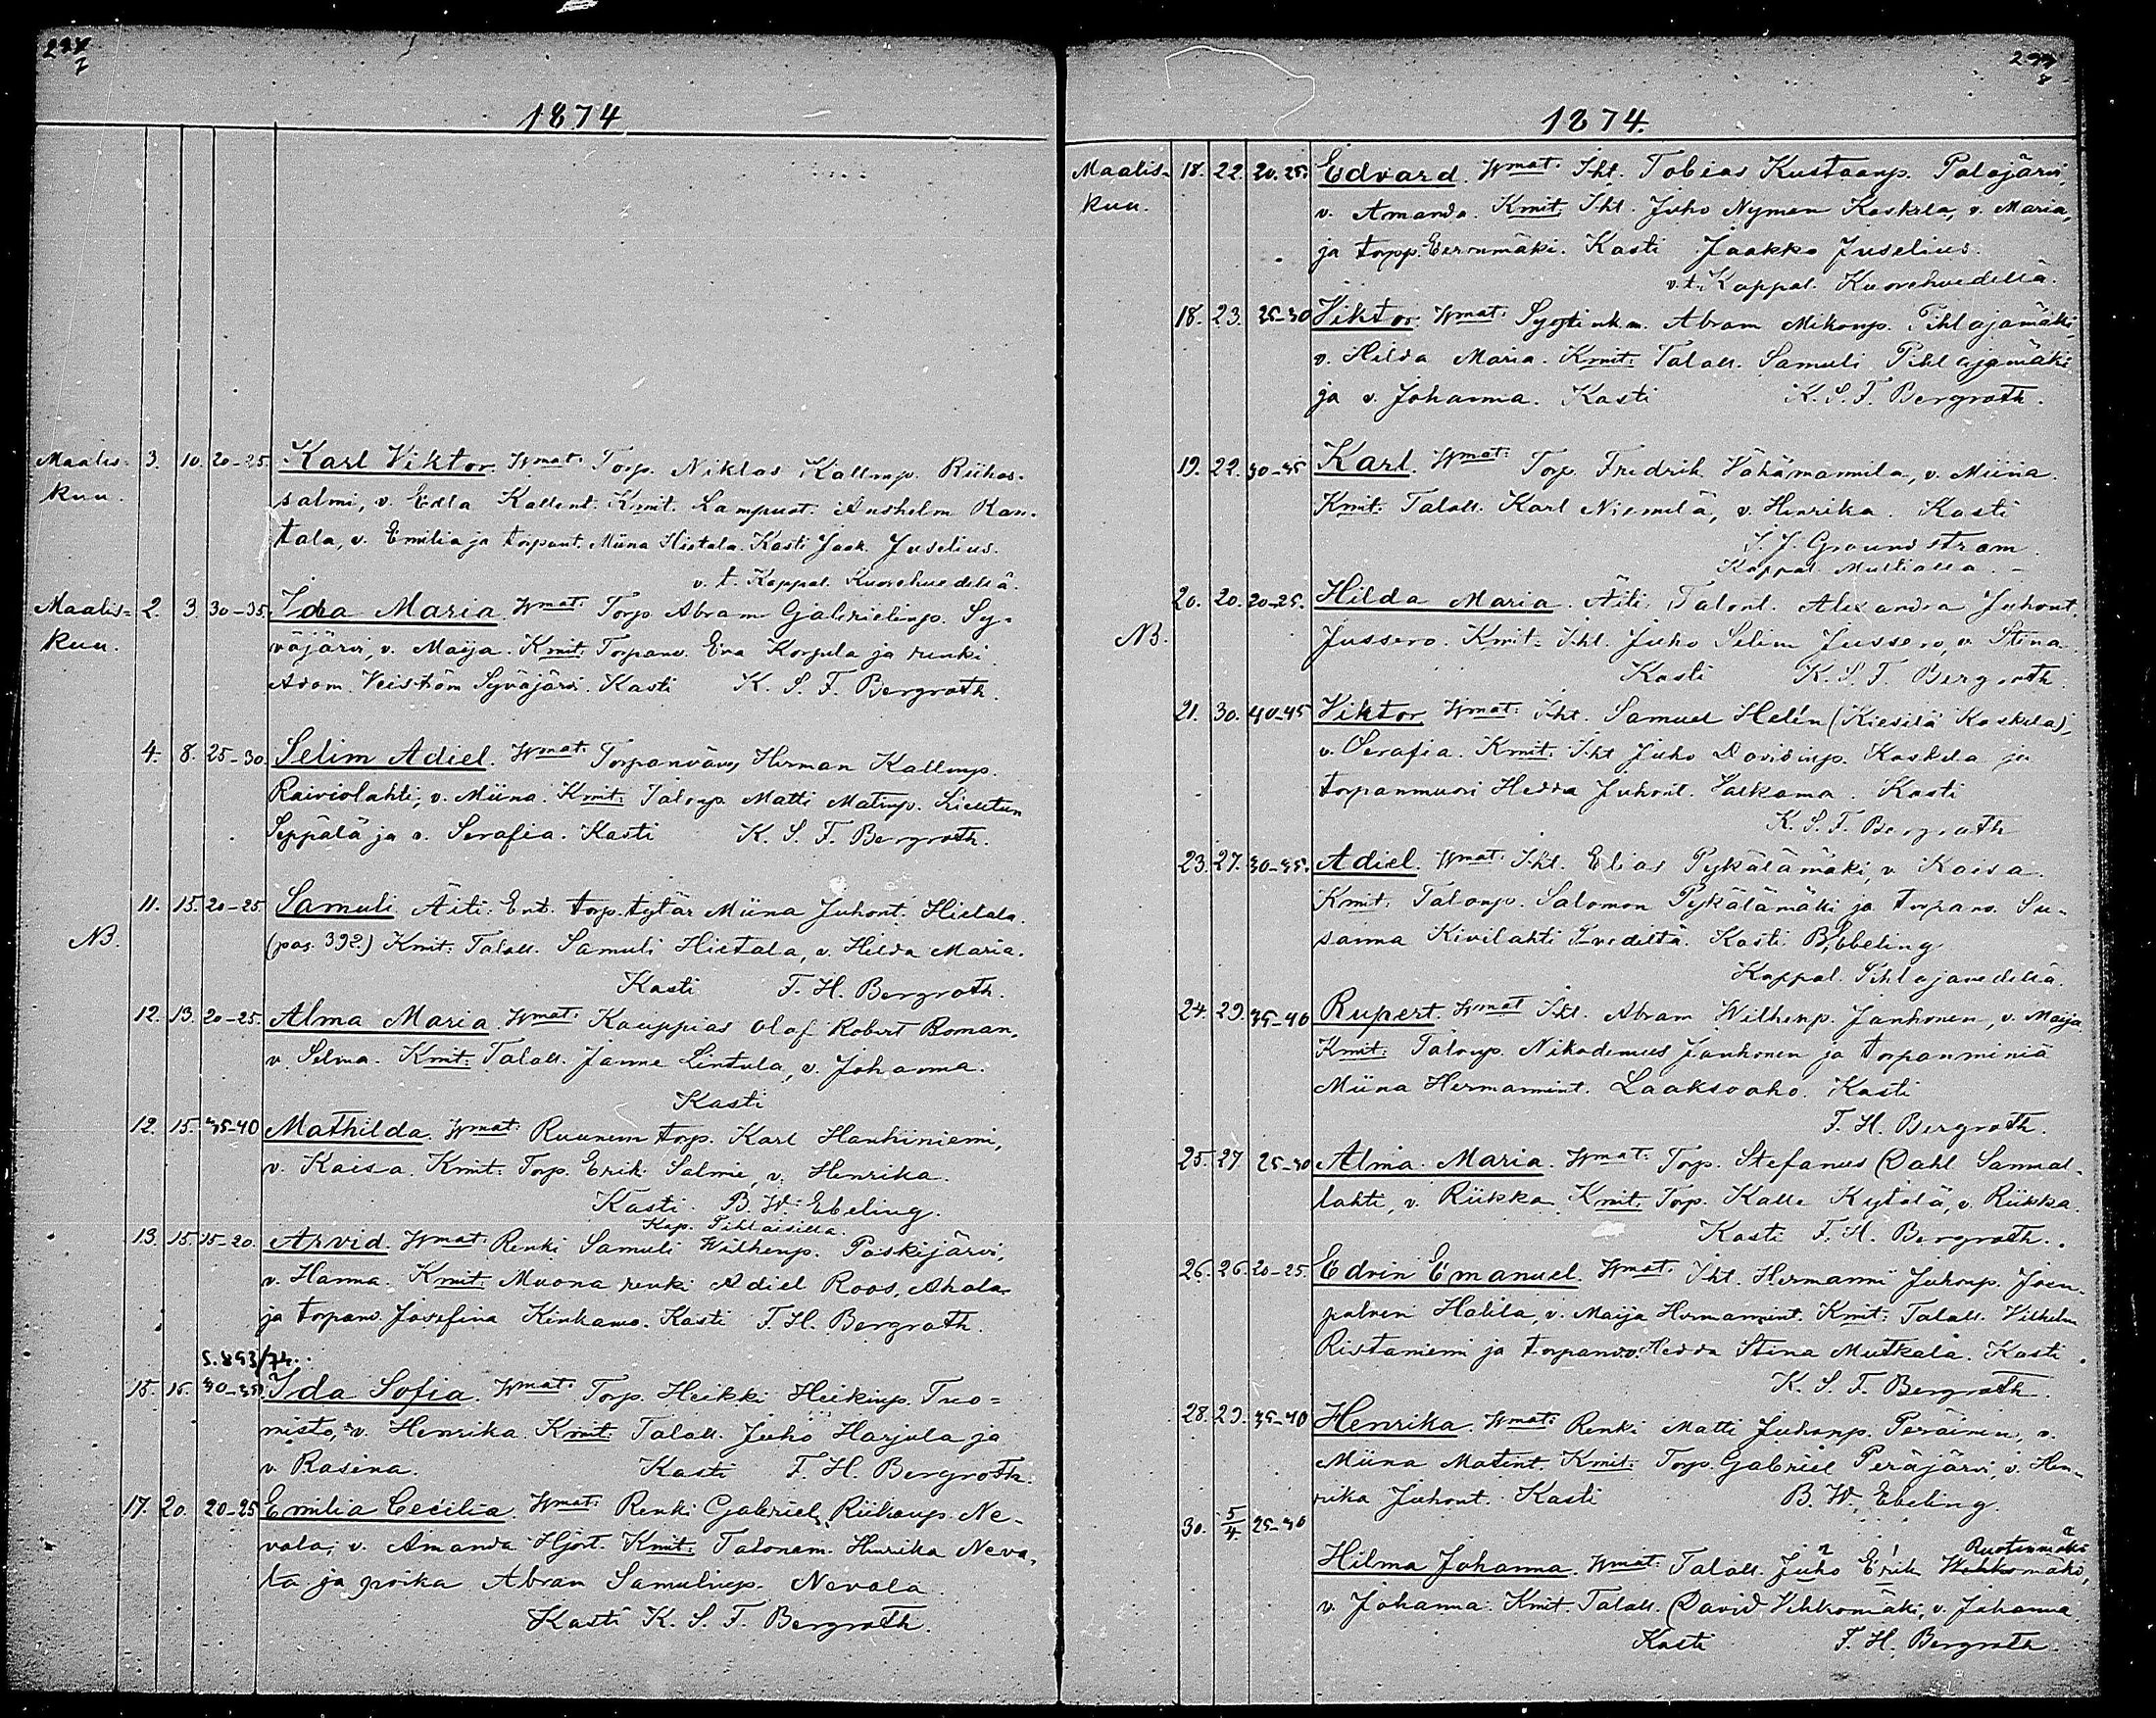 1874
Maalis- 3. 10. 20-25. Karl Viktor. Wmat: Torp. Niklas Kallenp. Riihos-
kuu. salmi, v. Edla Kallent. Kmit. Lampuot. Anshelm Ran-
tala, v. Emilia ja torpant. Miina Hietala. Kasti Jaak. Juselius.
v. t. Kappal. Kuorehvedellä.
Maalis- 2. 3. 30-35. Ida Maria. Wmat: Torp. Abram Gabrielinp. Sy-
kuu. väjärvi, v. Maija. Kmit: Torpanv. Eva Korpula ja renki
Adam Veiström Syväjärvi. Kasti K. S. F. Bergroth.
4. 8. 25-30. Selim Adiel. Wmat: Torpanvävy Herman Kallenp.
Raiviolahti, v. Miina. Kmit: Talonp. Matti Matinp.
Seppälä ja v. Serafia. Kasti K. S. F. Bergroth.
11. 15. 20-25 Samuli. Äiti: Ent. torp. tytär Miina Juhont. Hietala.
NB. (pag. 392.) Kmit: Talall. Samuli Hietala, v. Hilda Maria.
Kasti F. H. Bergroth.
12. 13. 20-25. Alma Maria. Wmat: Kauppias Olof Robert Boman,
v. Selma. Kmit: Talall. Janne Lintula, v. Johanna.
Kasti
12. 15. 35-40 Mathilda. Wmat: Ruunun torp. Karl Hanhiniemi,
v. Kaisa. Kmit: Torp. Erik Salmie, v. Henrika.
Kasti B. W. Ebeling.
Kap. Pihlaisilla.
13. 15. 15-20. Arvid. Wmat: Renki Samuli Wilhenp. Paskijärvi,
v. Hanna. Kmit: Muona renki Adiel Roos, Ahola
ja torpanv. Josefina Kinkamo. Kasti F. H. Bergroth.
S. 893/74.
15. 16. 30-35 Ida Sofia. Wmat: Torp. Heikki Heikinp. Tuo=
misto, v. Henrika. Kmit: Talall. Juho Harjula ja
v. Rasina. Kasti F. H. Bergroth.
17. 20. 20-25 Emilia Cecilia. Wmat: Renki Gabriel Riikanp. Ne-
vala, v. Amanda Hjort. Kmit: Talonem. Henrika Neva-
la ja poika Abram Samulinp. Nevala.
Kasti K. S. F. Bergroth.
1874.
Maalis- 18. 22. 20-25. Edvard. Wmat: Ihl. Tobias Kustaanp. Palojärvi,
kuu. v. Amanda. Kmit: Ihl. Juho Nyman Koskela, v. Maria,
ja torpp. Eeronmäki. Kasti Jaakko Juselius.
v. t. Kappal. Kuorehvedellä.
18. 23. 25-30 Viktor. Wmat: Abram Mikonp. Pihlajamäki,
v. Hilda Maria. Kmit: Talall. Samuli Pihlajamäki
ja v. Johanna. Kasti K. S. F. Bergroth.
19. 22. 30-35 Karl. Wmat: Torp. Fredrik Vähämannila, v. Miina.
Kmit: Talall. Karl Niemelä, v. Henrika. Kasti
Kappal. Multialla.
20. 20. 20-25. Hilda Maria. Äiti: Talont. Alexandra Juhont.
NB. Jussero. Kmit: Ihl. Juho Selim Jussero, v. Stina.
Kasti K. S. F. Bergroth.
21. 30. 40-45 Viktor. Wmat: Ihl. Samuel Helén (Kiesilä Koskela),
v. Serafia. Kmit: Ihl. Juho Davidinp. Koskela ja
torpanmuori Hedda Juhont. Valkama. Kasti
K. S. F. Bergroth
23. 27. 30-35. Adiel. Wmat: Ihl. Elias Pykälämäki, v. Kaisa.
Kmit: Talonp. Salomon Pykälämäki ja torpanv. Su-
sanna Kivilahti Kasti B. Ebeling
Kappal. Pihlajavedellä.
24. 29. 35-40 Rupert. Wmat Ihl. Abram Wilhenp. Janhonen, v. Maija
Kmit: Talonp. Nikodemus Janhonen ja torpanminiä
Miina Hermannint. Laaksoaho. Kasti
F. H. Bergroth.
25. 27 25-30 Alma Maria. Wmat: Torp. Stefanus Dahl Sammal-
lahti, v. Riikka. Kmit: Torp. Kalle Kytölä, v. Riikka.
Kasti F. H. Bergroth.
26. 26. 20-25. Edvin Emanuel. Wmat: Ihl. Hermanni Juhonp. Joen-
polven Halila, v. Maija Hermannint. Kmit: Talall. Vilhelm
Ristaniemi ja torpanv. Hedda Stina Mutkala. Kasti
K. S. F. Bergroth.
28. 29. 35-40 Henrika. Wmat: Renki Matti Juhonp. Peräinen, v.
Miina Matint. Kmit: Torp. Gabriel Peräjärvi, v. Hen-
rika Juhont. Kasti B. W. Ebeling.
30. 5/4. 25-30
Ruotinmäki
Hilma Johanna. Wmat: Talall. Juho Erik Wehkomäki,
v. Johanna. Kmit: Talall. David Vehkomäki, v. Johanna.
Kasti F. H. Bergroth.